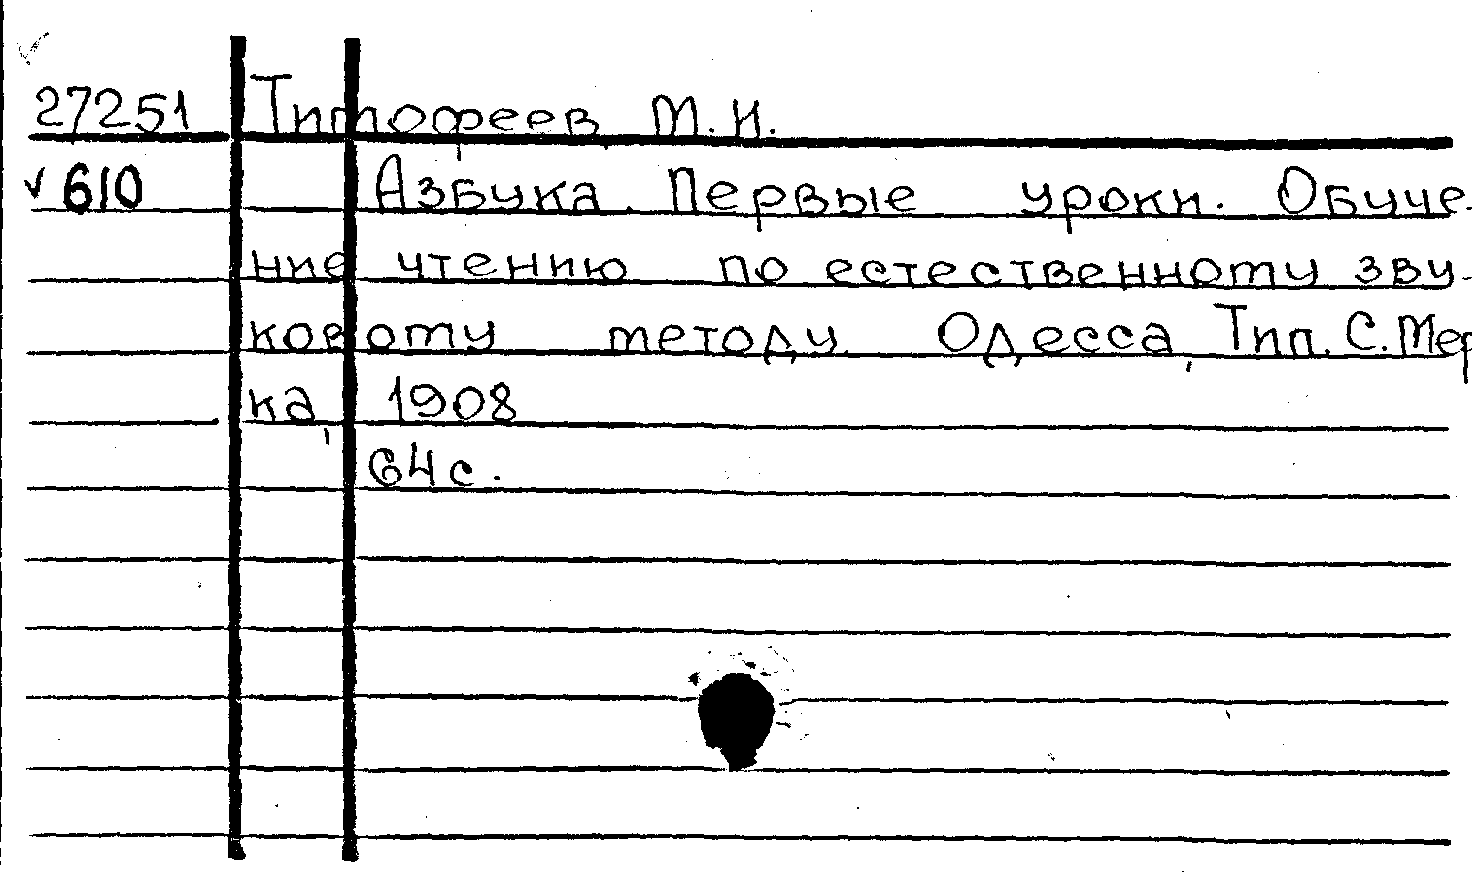 27251 Тимофеев М.И.
✓ 610 Азбука. Первые уроки. Обуче-
ние чтению по естественному зву-
ковому методу. Одесса, Тип. С. Мер
ка, 1908
64 с.